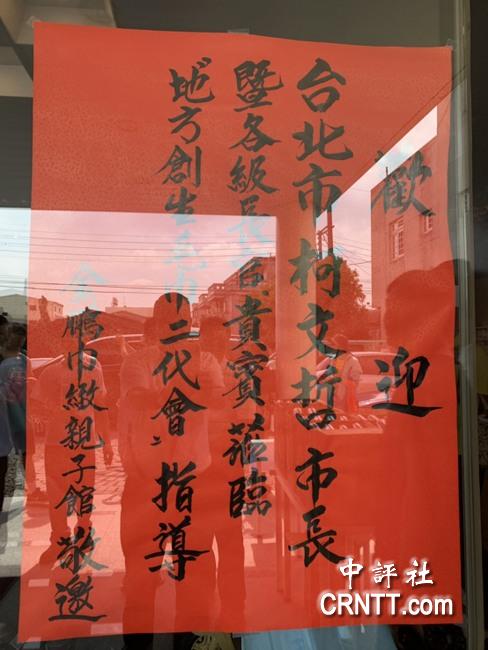 歡迎
台北市柯文哲市長
暨各級長官貴賓蒞臨
地方創生二代會指導
金鵬巾緻親子館敬邀
中評社
CRNTT.com